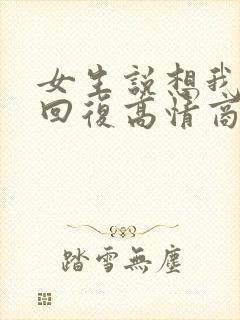 女生説想我
回復高情商
踏雪無塵